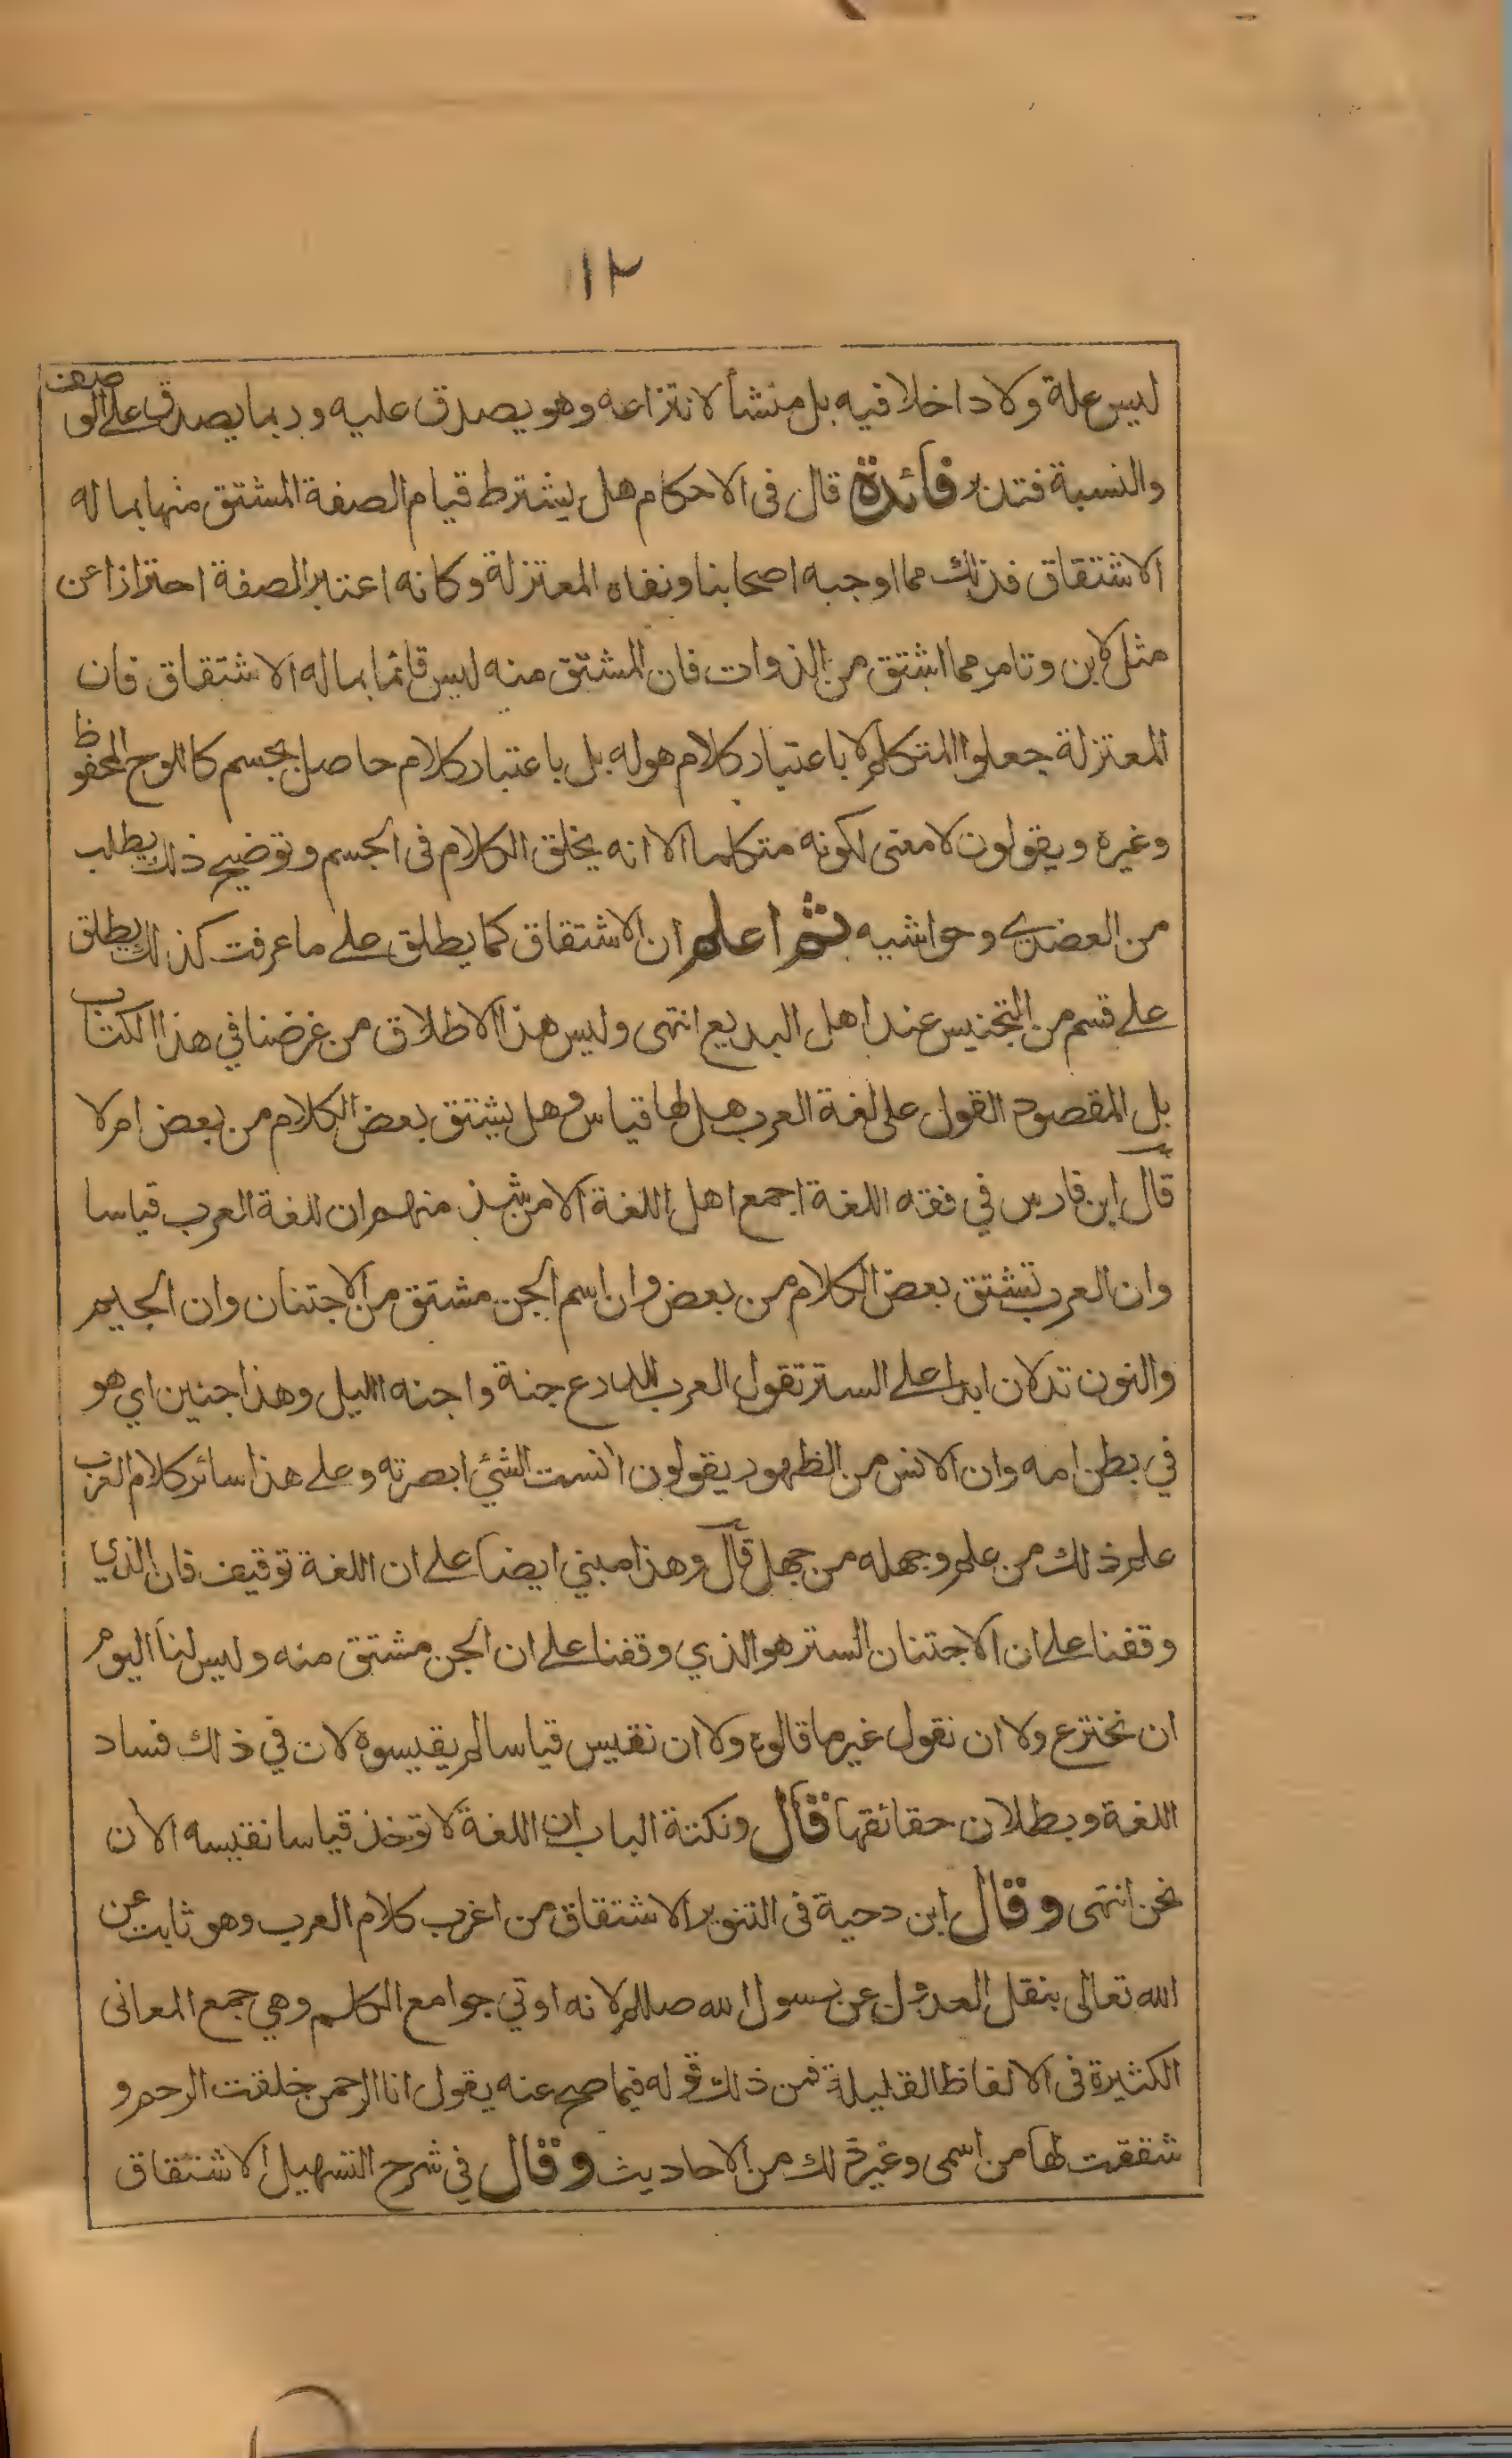 ١٢
ليس علة ولا داخلا فيه بل منشأ لانتزاعه وهو يصدق عليه وربما يصدق على الوصف
والنسبة فتدبر فائدة قال فى الاحكام هل يشترط قيام الصفة المشتق منها بما له
الاشتقاق فذلك مما اوجبه اصحابنا ونفاه المعتزلة وكانه اعتبر الصفة احترازا عن
مثل لابن وتامر مما اشتق من الذوات فان المشتق منه ليس قائما بما له الاشتقاق فان
المعتزلة جعلوا المتكلم لا باعتبار كلام هو له بل باعتبار كلام حاصل بجسم كاللوح المحفوظ
وغيره ويقولون لا معنى لكونه متكلما الا انه يخلق الكلام فى الجسم وتوضيح ذلك يطلب
من العضدي وحواشيه ثم اعلم ان الاشتقاق كما يطلق على ما عرفت كذلك يطلق
على قسم من التجنيس عند اهل البديع انتهى وليس هذا الاطلاق من غرضنا في هذا الكتاب
بل المقصود القول على لغة العرب هل لها قياس وهل يشتق بعض الكلام من بعض ام لا
قال ابن فارس في فقه اللغة اجمع اهل اللغة الا من شذ منهم ان للغة العرب قياسا
وان العرب تشتق بعض الكلام من بعض وان اسم الجن مشتق من الاجتنان وان الجيم
والنون تدلان ابدا على الستر تقول العرب للدرع جنة واجنه الليل وهذا جنين اي هو
في بطن امه وان الانس من الظهور يقولون آنست الشئ ابصرته وعلى هذا سائر كلام العرب
علم ذلك من علم وجهله من جهل قال وهذا مبني ايضا على ان اللغة توقيف فان الذي
وقفنا على ان الاجتنان الستر هو الذي وقفنا على ان الجن مشتق منه وليس لنا اليوم
ان نخترع ولا ان نقول غير ما قالوه ولا ان نقيس قياسا لم يقيسوه لان في ذلك فساد
اللغة وبطلان حقائقها قال ونكتة الباب ان اللغة لا توخذ قياسا نقيسه الان
نحن انتهى وقال ابن دحية فى التنوير الاشتقاق من اغرب كلام العرب وهو ثابت عن
الله تعالى بنقل العدول عن رسول الله صللم لانه اوتي جوامع الكلم وهي جمع المعانى
الكثيرة فى الالفاظ القليلة فمن ذلك قوله فيما صح عنه يقول انا الرحمن خلقت الرحم و
شققت لها من اسمى وغير ذلك من الاحاديث وقال في شرح التسهيل الاشتقاق